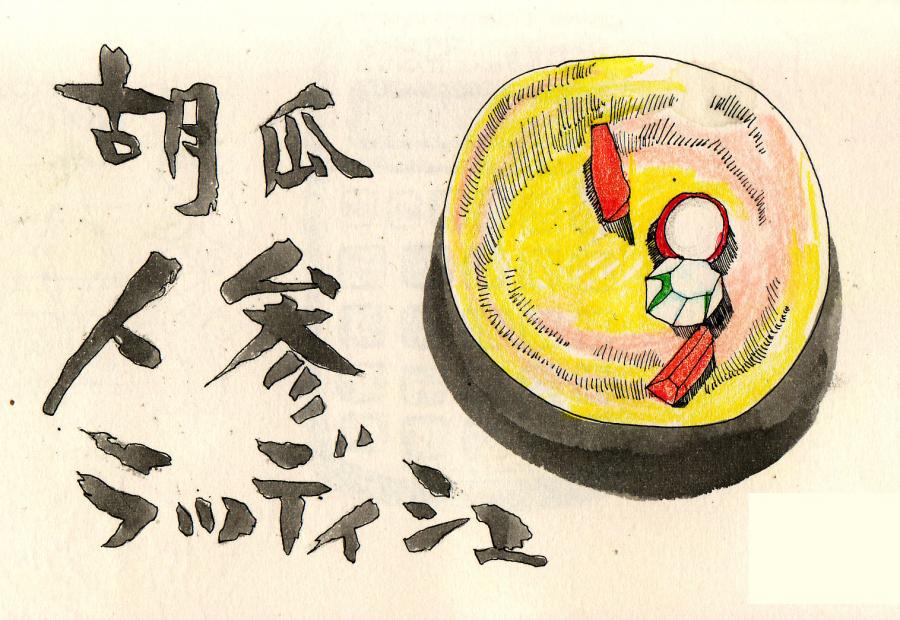 胡瓜
人参
ラッディシュ